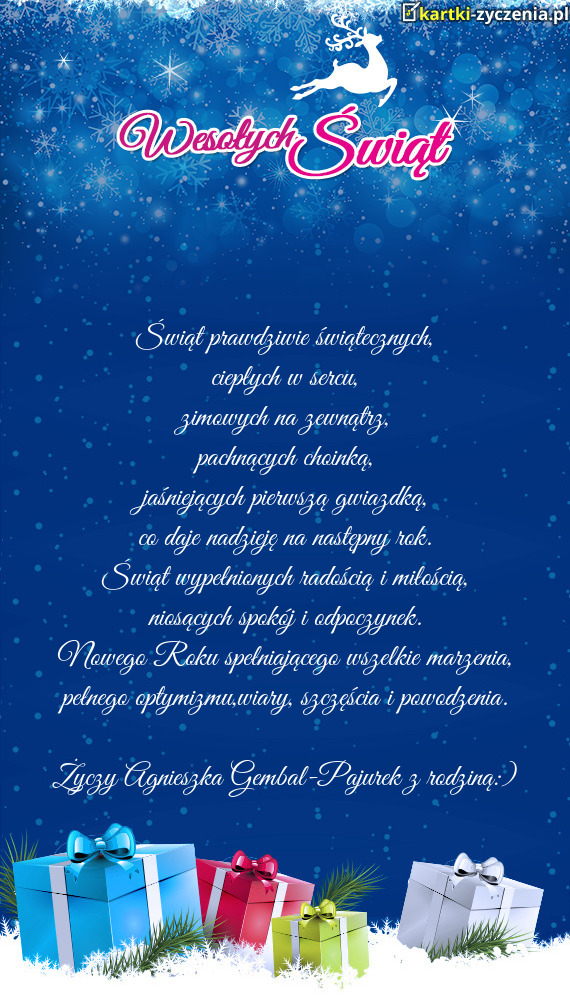 kartki-zyczenia.pl
Wesołych Świąt
Świąt prawdziwie świątecznych,
ciepłych w sercu,
zimowych na zewnątrz,
pachnących choinką,
jaśniejących pierwszą gwiazdką,
co daje nadzieję na następny rok.
Świąt wypełnionych radością i miłością,
niosących spokój i odpoczynek.
Nowego Roku spełniającego wszelkie marzenia,
pełnego optymizmu,wiary, szczęścia i powodzenia.
Życzy Agnieszka Gembal-Pajurek z rodziną:)